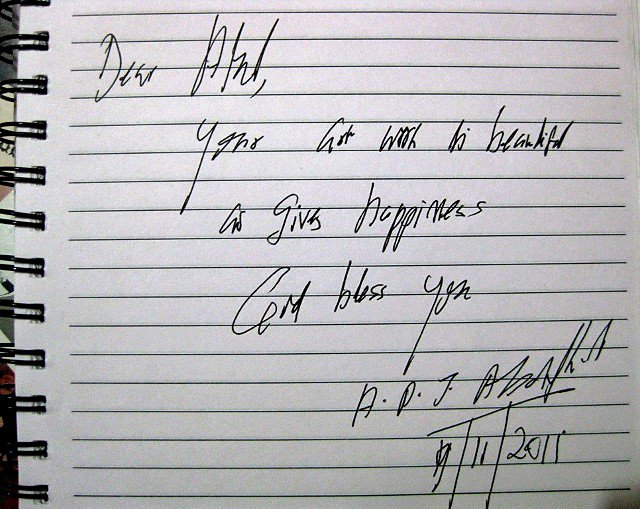 Dear Atul,
Your art work is beautiful
as gives happiness
God bless you
A. P. J. Abdul
/11/2011